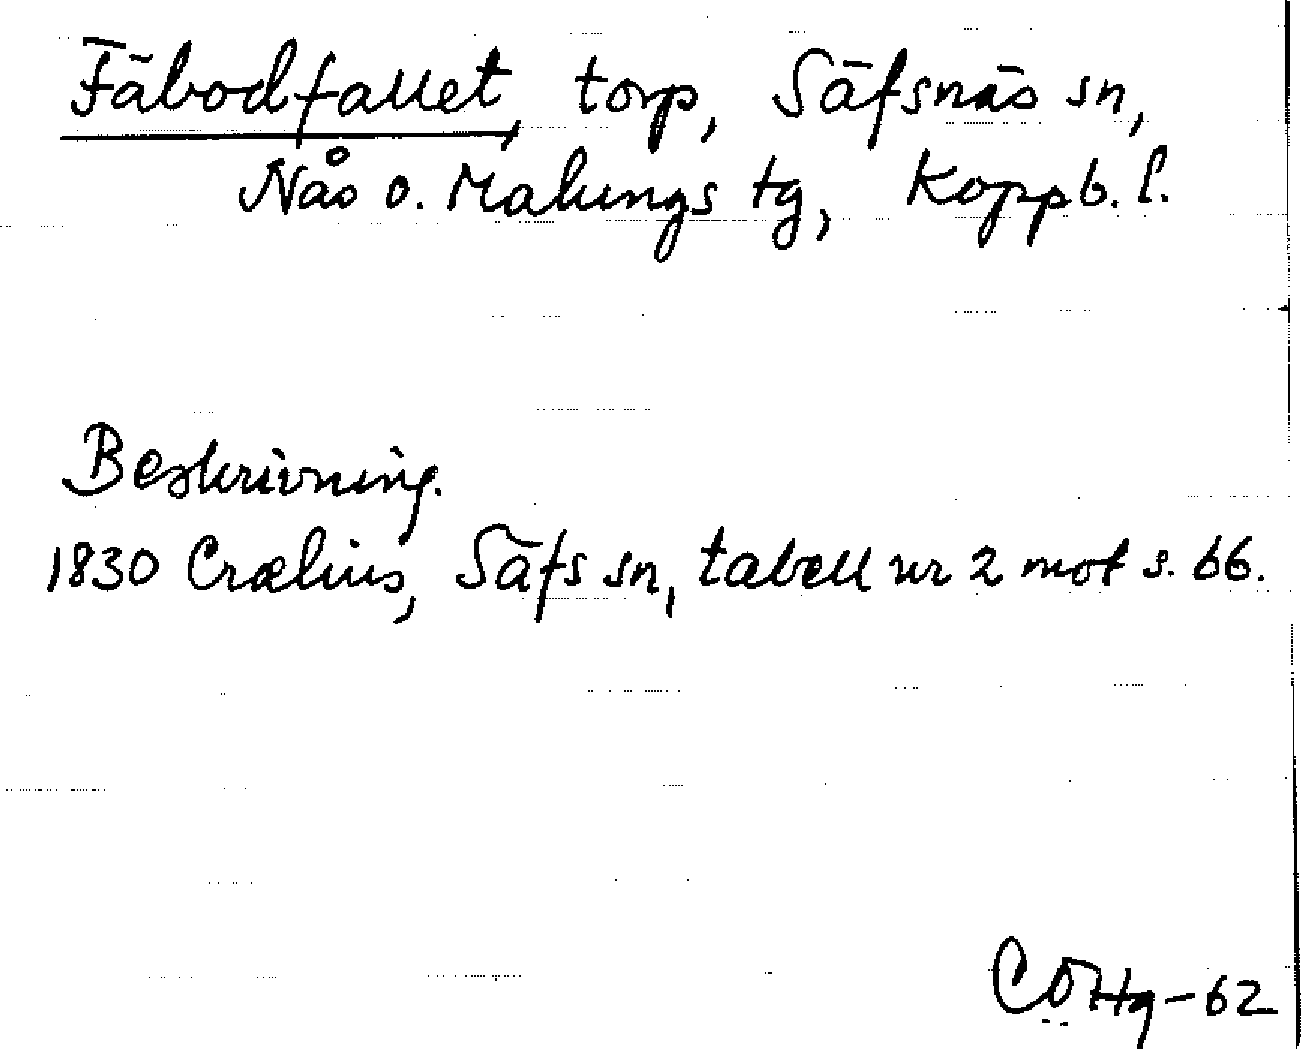 Fäbodfallet, torp, Säfsnäs sn,
Nås o. Malungs tg, Koppb. l.
Beskrivning.
1830 Crælius, Säfs sn, tabell nr 2 mot s. 66.
-62